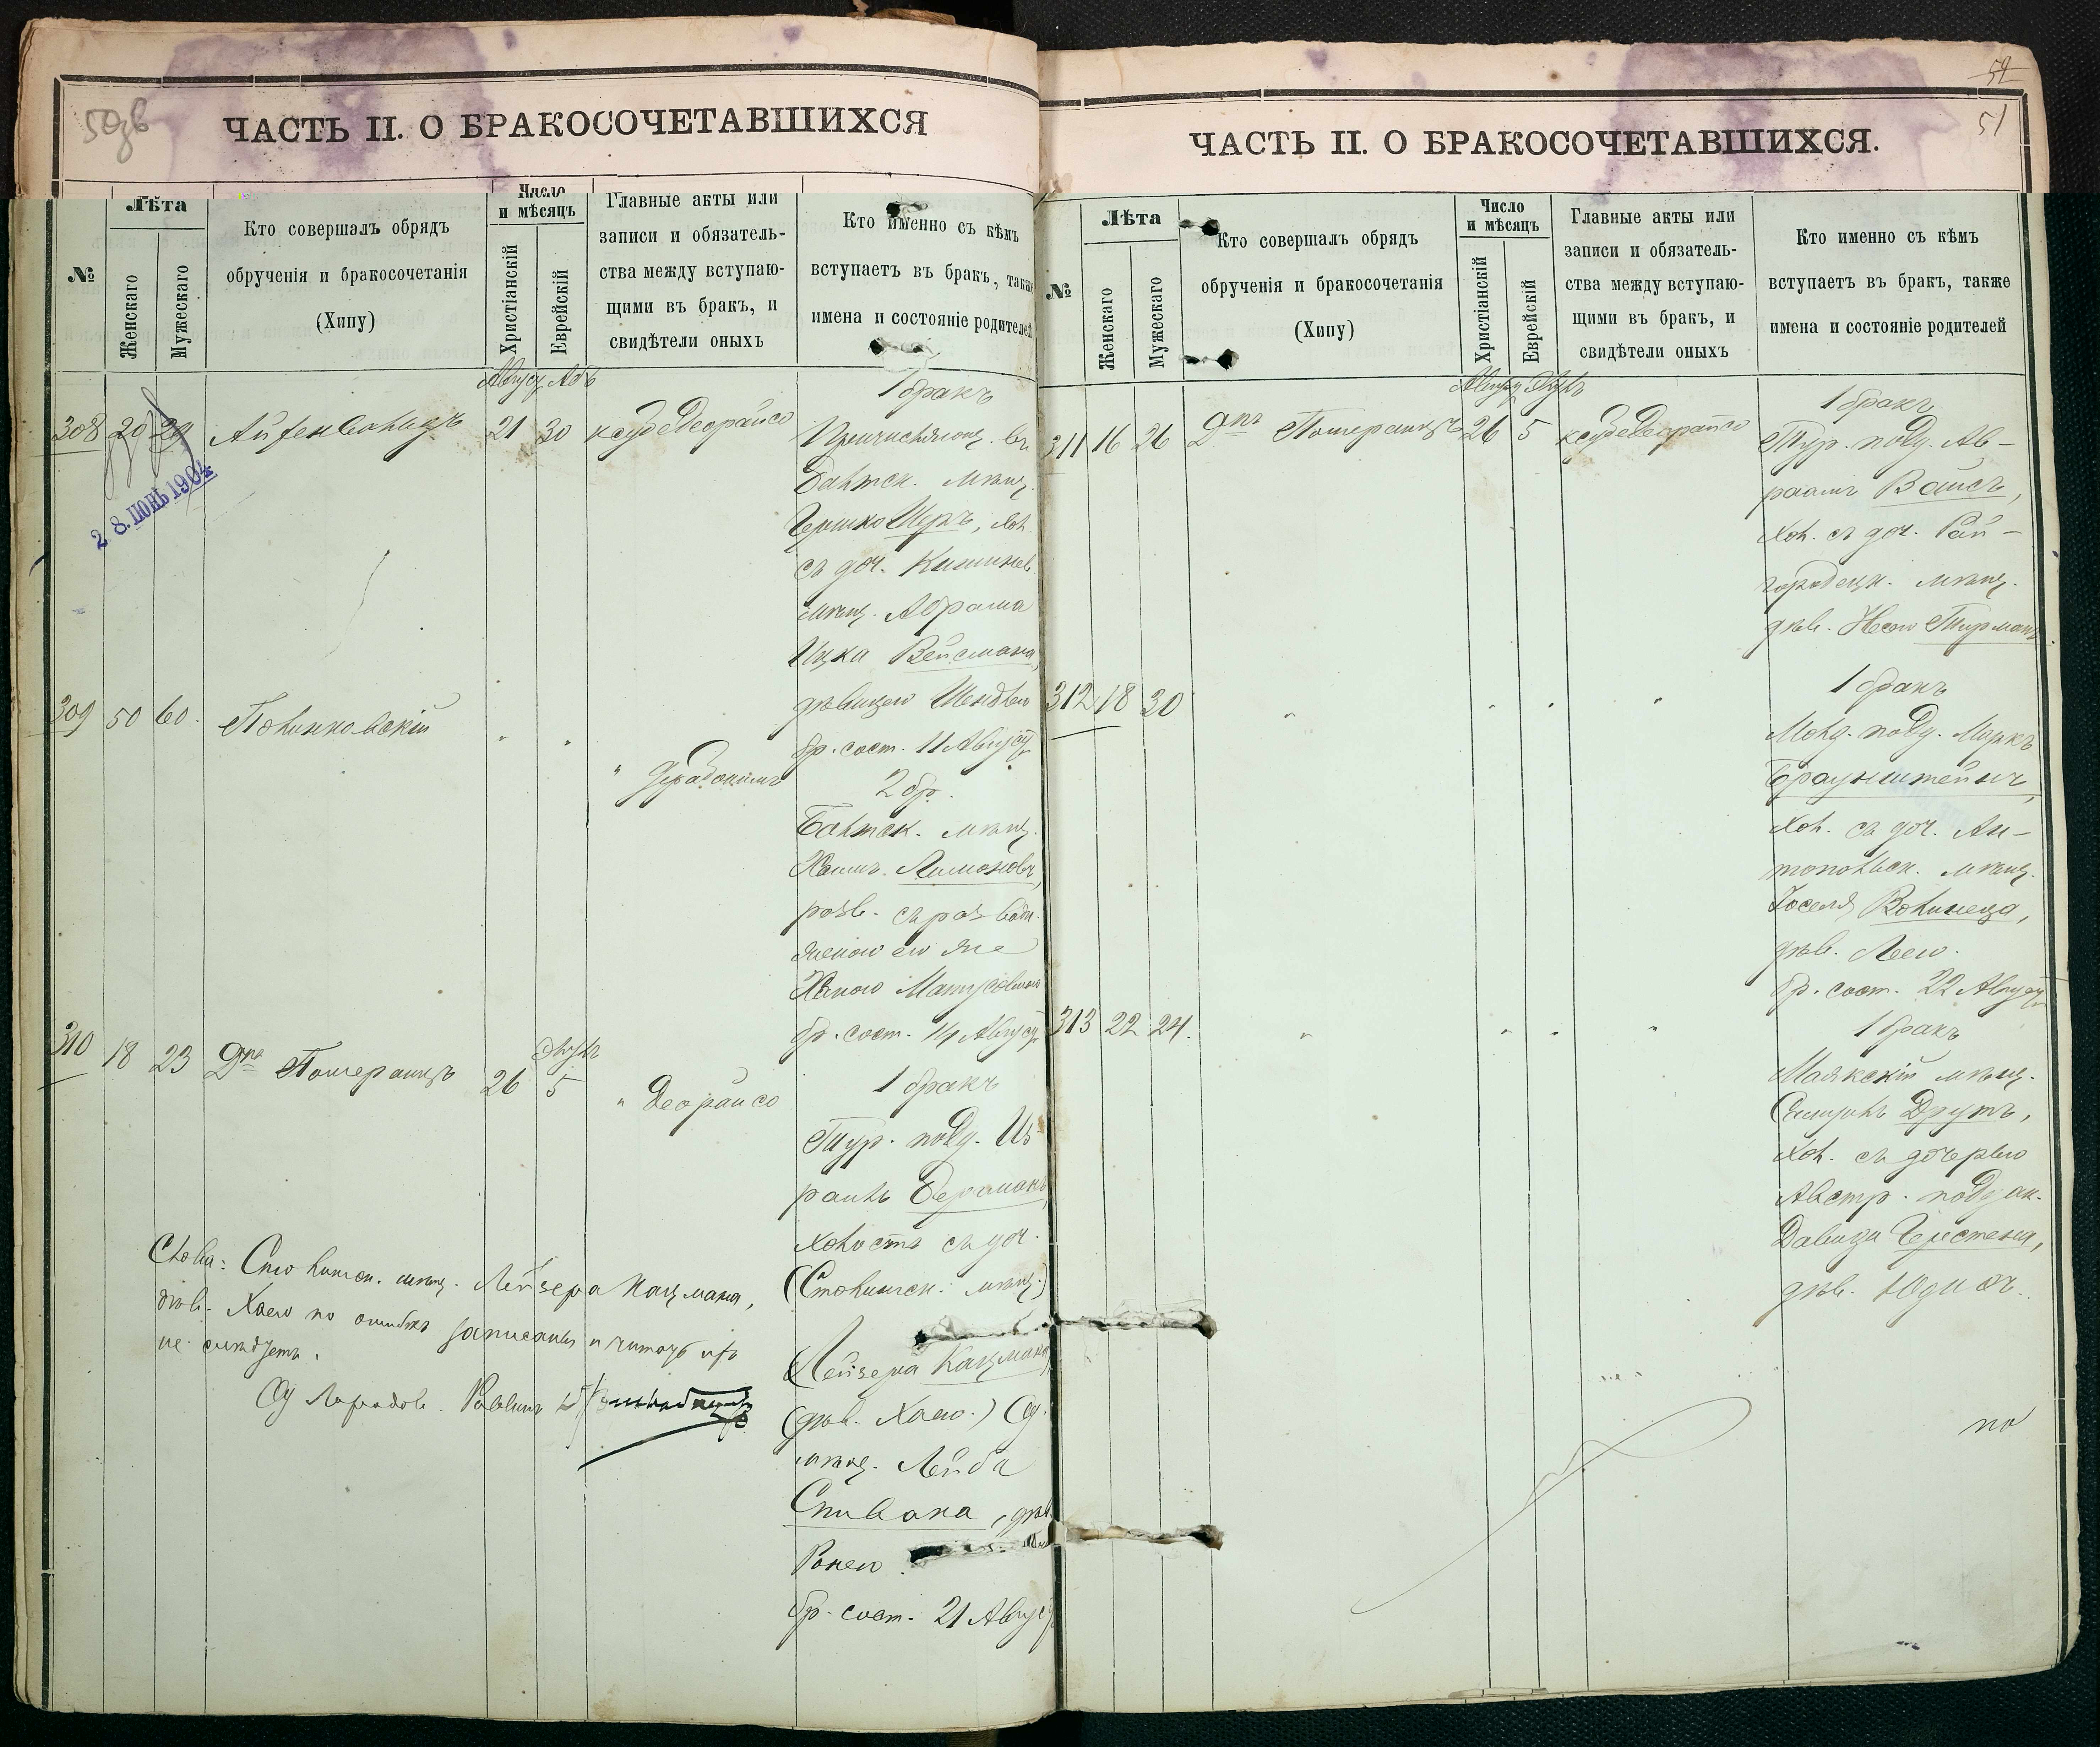 50зв
ЧАСТЬ II. О БРАКОСОЧЕТАВШИХСЯ
№
Лѣта
Женскаго
Мужескаго
Кто совершалъ обрядъ
обрученія и бракосочетанія
(Хипу)
Число
и мѣсяцъ
Христіанскій
Еврейскій
Главные акты или
записи и обязатель-
ства между вступаю-
щими въ бракъ, и
свидѣтели оныхъ
Кто именно съ кѣмъ
вступаетъ въ бракъ, также
имена и состояніе родителей
Август Абъ
308 20 29 Айзенвальдъ 21 30 ксуде Деорайсо
2. 8. ІЮНЬ 1904
1 бракъ
Причислющ. въ
Балтск. мѣщ.
Гершко Шеръ, хол.
съ доч. Кишинев.
мѣщ. Абрама
Ицка Вейсмана,
дѣвицею Шендлею
бр. сост. 11 Август
309 50 60. Полинковскій " " " Дерабонимъ
2 бр.
Балтск. мѣщ.
Хаимъ Лимоновъ,
разв. съ развод.
женою его же
Ханою Матусовною
бр. сост. 14 Август
310 18 23 Д-ръ Померанцъ 26 Элулъ 5 " Деорайсо
1 бракъ
Тур. подд. Из-
раиль Бергманъ,
холостъ съ доч.
(Смолинск. мѣщ.)
(Лейзера Кацмана)
(дѣв. Хаею.) Од.
мѣщ. Лейба
Спивака, дѣв.
Рохею.
бр. сост. 21 Август
Слова: Смолинск. мѣщ. Лейзера Кацмана,
дѣв. Хаею по ошибкѣ записаны и читать ихъ
не слѣдуетъ.
Од Городов. Раввинъ
52
51
ЧАСТЬ II. О БРАКОСОЧЕТАВШИХСЯ.
№
Лѣта
Женскаго
Мужескаго
Кто совершалъ обрядъ
обрученія и бракосочетанія
(Хипу)
Число
и мѣсяцъ
Христіанскій
Еврейскій
Главные акты или
записи и обязатель-
ства между вступаю-
щими въ бракъ, и
свидѣтели оныхъ
Кто именно съ кѣмъ
вступаетъ въ бракъ, также
имена и состояніе родителей
Август Элулъ
311 16 26 Д-ръ Померанцъ 26 5 ксуде Деорайсо
1 бракъ
Тур. подд. Ав-
раамъ Вайсъ,
хол. съ доч. Рай-
городецк. мѣщ.
дѣв. Несю Тирманъ
312 18 30 " " " "
1 бракъ
Молд. подд. Маркъ
Браунштейнъ,
хол. съ доч. Ан-
топольск. мѣщ.
Іоселя Волинеца,
дѣв. Леею.
бр. сост. 22 Август
313 22 24. " " " "
1 бракъ
Маякскій мѣщ.
Самуилъ Друтъ,
хол. съ дочерью
Австр. поддан.
Давида Герстена,
дѣв. Юдисъ.
по